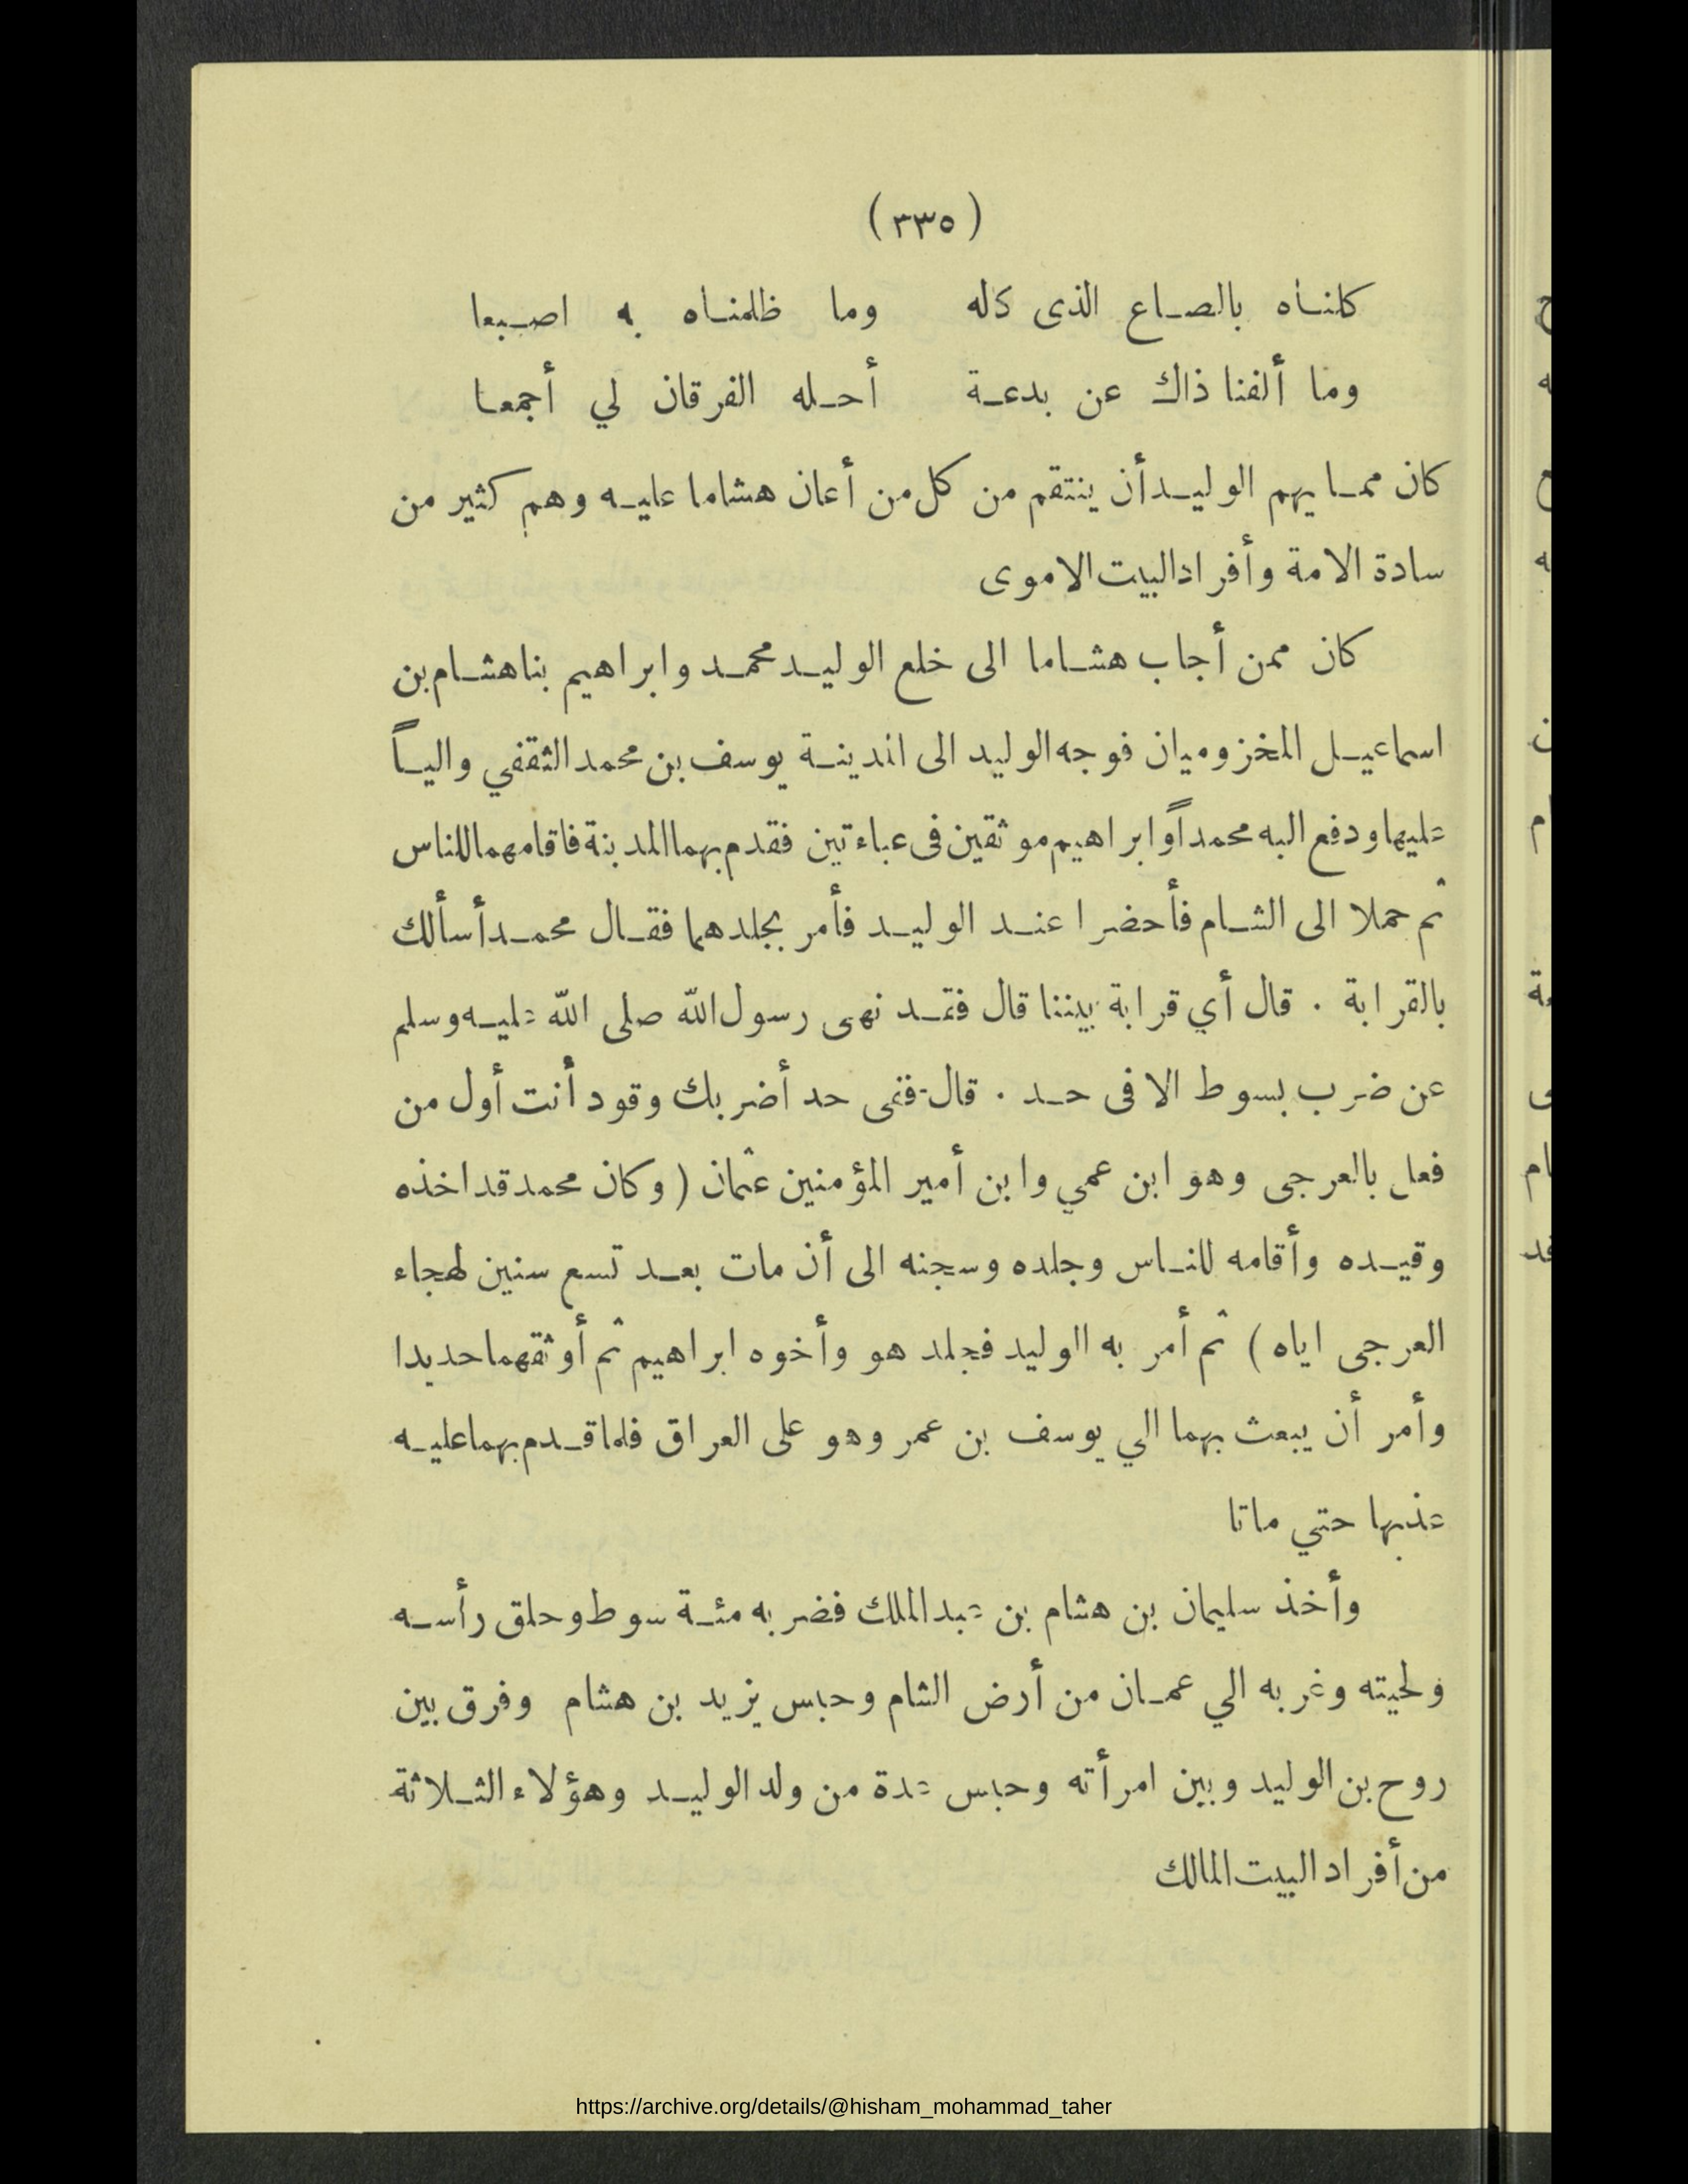 (٣٣٥)
كلناه بالصاع الذى كاله وما ظلمناه به اصبعا
وما ألفنا ذاك عن بدعة أحله الفرقان لي أجمعا
كان مما يهم الوليد أن ينتقم من كل من أعان هشاما عليه وهم كثير من
سادة الامة وأفراد البيت الاموى
كان ممن أجاب هشاما الى خلع الوليد محمد وابراهيم بنا هشام بن
اسماعيل المخزوميان فوجه الوليد الى المدينة يوسف بن محمد الثقفي والياً
عليها ودفع اليه محمداً وابراهيم موثقين فى عباءتين فقدم بهما المدينة فاقامهما للناس
ثم حملا الى الشام فأحضرا عند الوليد فأمر بجلدهما فقال محمد أسألك
بالقرابة . قال أي قرابة بيننا قال فقد نهى رسول الله صلى الله عليه وسلم
عن ضرب بسوط الا فى حد . قال ففى حد أضربك وقود أنت أول من
فعل بالعرجى وهو ابن عمي وابن أمير المؤمنين عثمان ( وكان محمد قد اخذه
وقيده وأقامه للناس وجلده وسجنه الى أن مات بعد تسع سنين لهجاء
العرجى اياه ) ثم أمر به الوليد فجلد هو وأخوه ابراهيم ثم أوثقهما حديدا
وأمر أن يبعث بهما الي يوسف بن عمر وهو على العراق فلما قدم بهما عليه
عذبها حتي ماتا
وأخذ سليمان بن هشام بن عبد الملك فضربه مئة سوط وحلق رأسه
ولحيته وغربه الي عمان من أرض الشام وحبس يزيد بن هشام وفرق بين
روح بن الوليد وبين امرأته وحبس عدة من ولد الوليد وهؤلاء الثلاثة
من أفراد البيت المالك
https://archive.org/details/@hisham_mohammad_taher